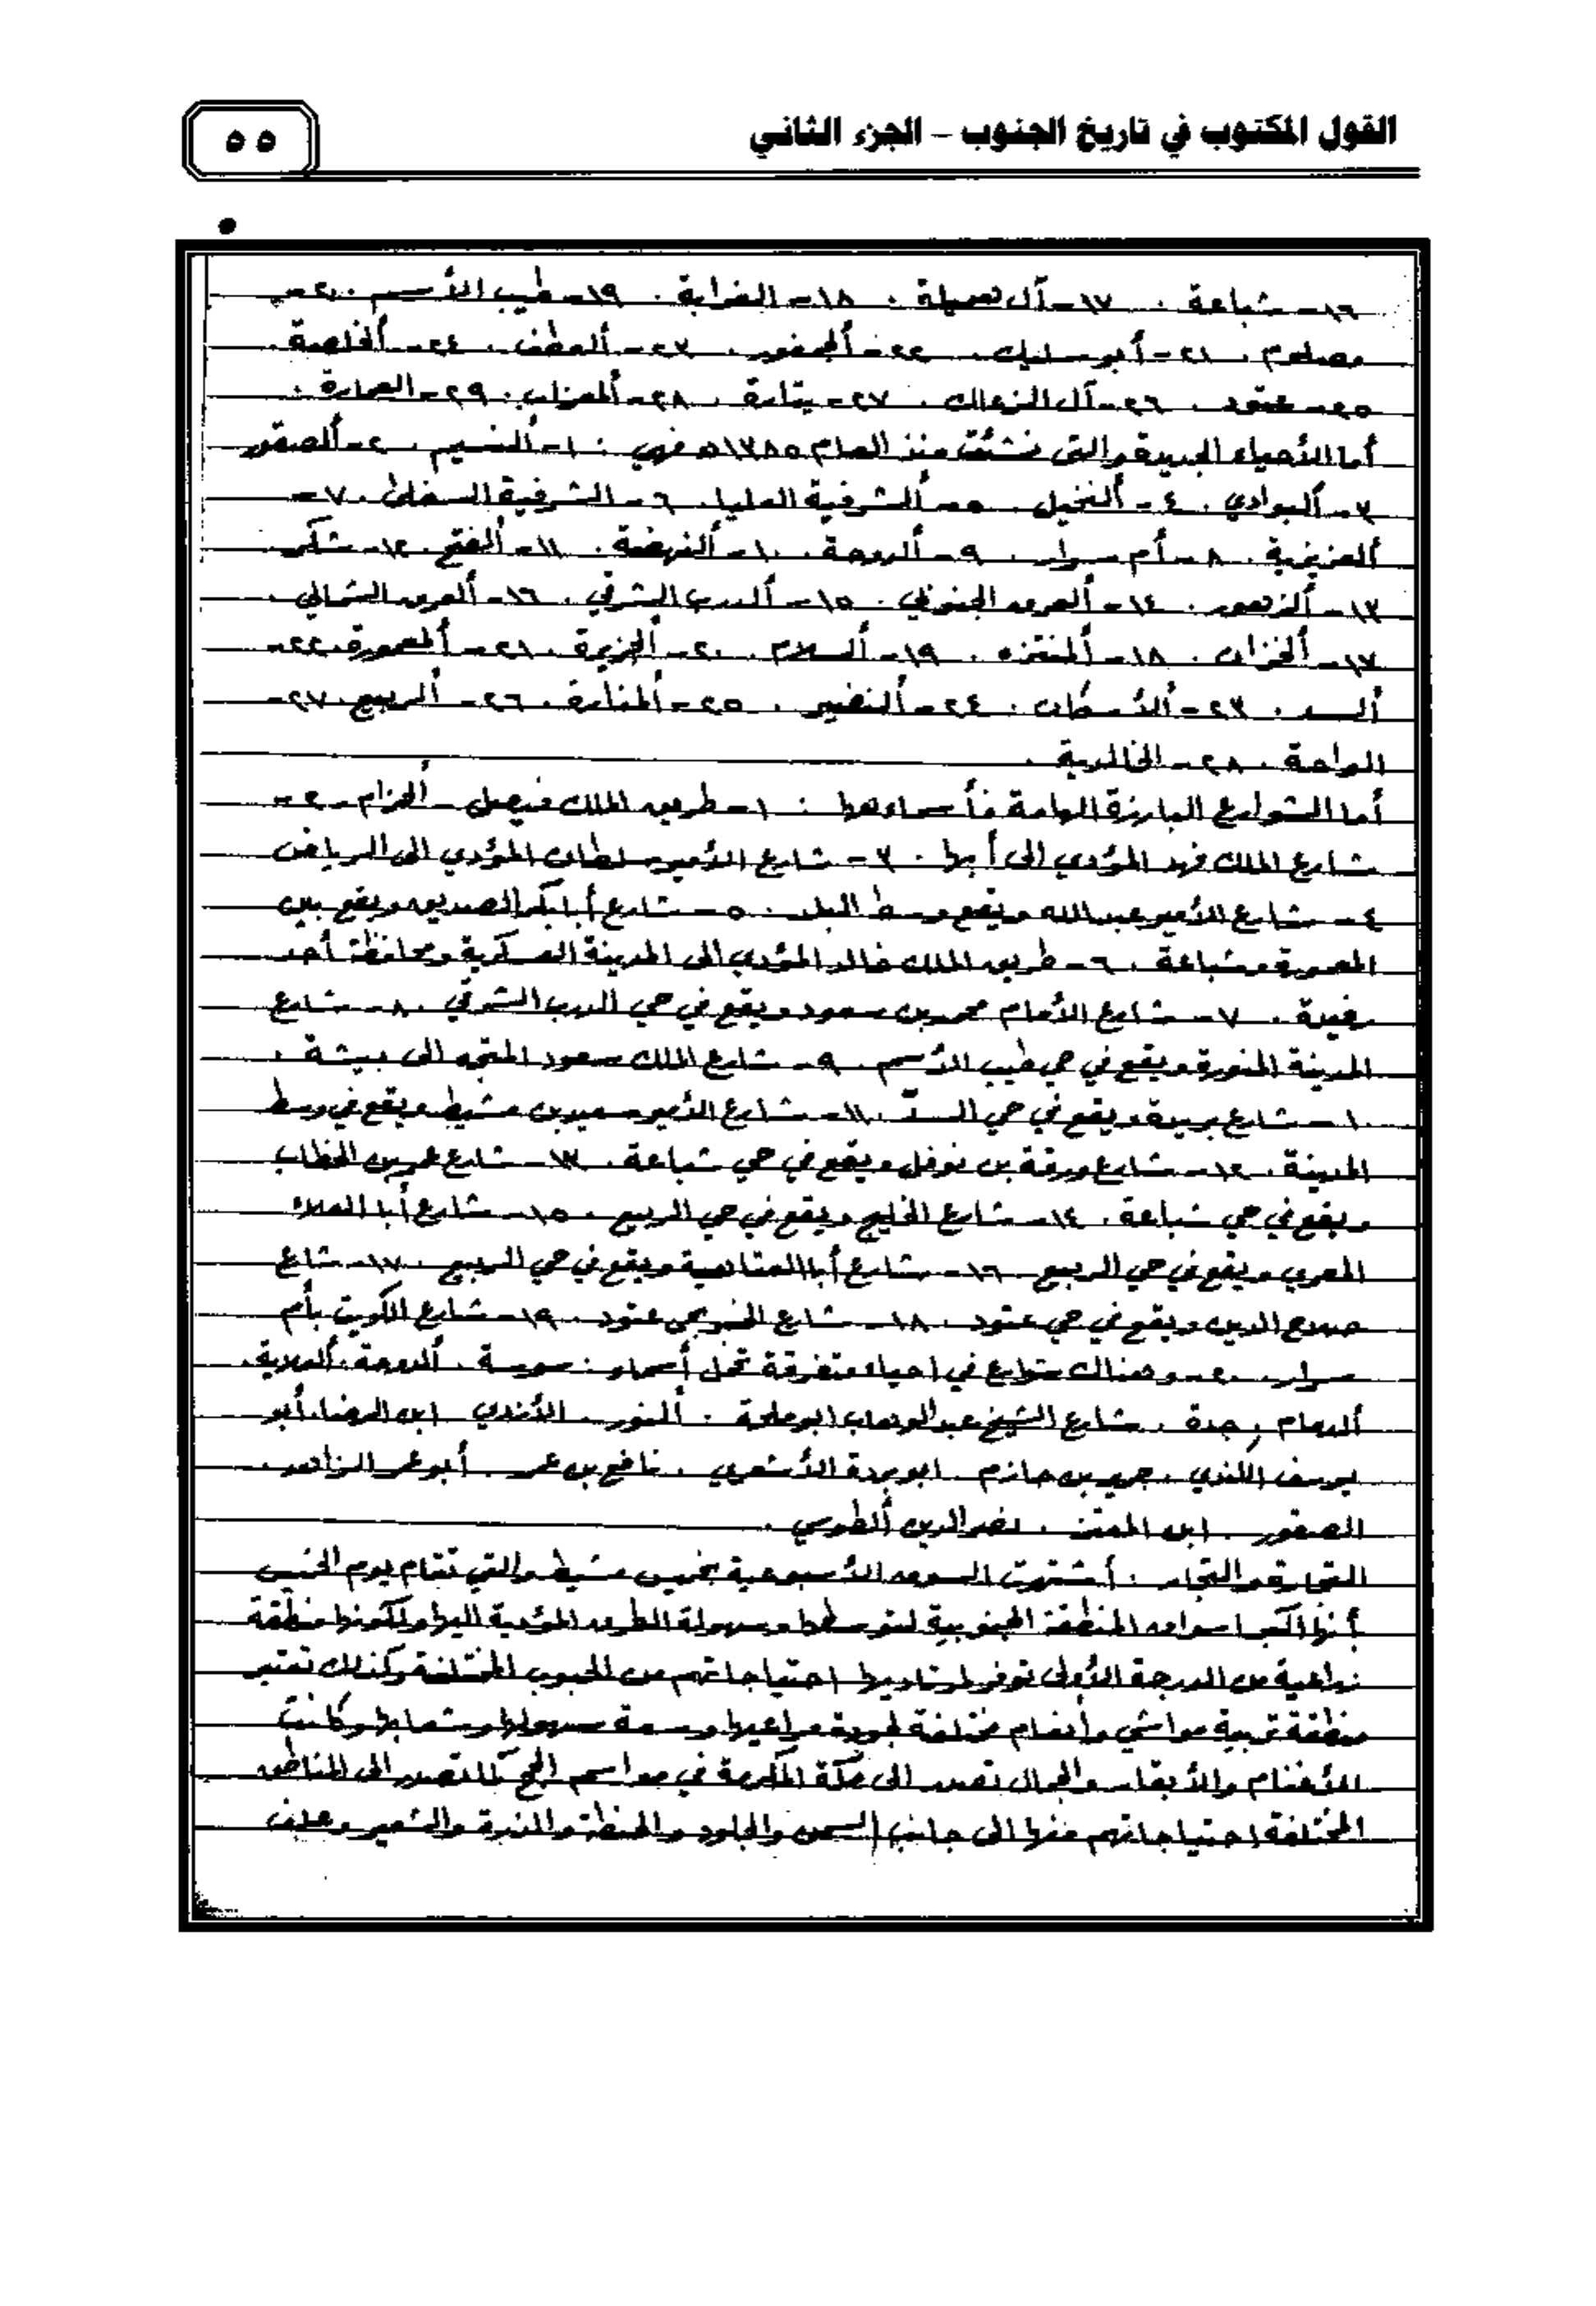 القول المكتوب في تاريخ الجنوب – الجزء الثاني
٥٥
١٦- شباعة . ١٧- آل نعميلة . ١٨- الغرابة . ١٩- طيب الأسم . ٢٠-
مصلوم . ٢١- أبو سليك . ٢٢- ألجمفور . ٢٣- ألعطف . ٢٤- ألخاصة .
٢٥- عتود . ٢٦- آل الزعلك . ٢٧- يتامة . ٢٨- ألمعزاب . ٢٩- العمارة .
أما الأحياء الجديدة والتي نشئت منذ العام ١٣٨٥هـ فهي : ١- ألنسيم . ٢- ألصقور
٣- ألبوادي . ٤- ألنخيل . ٥- ألشرفية العليا . ٦- الشرفية السفلى . ٧-
ألعزيزية . ٨- أم سرار . ٩- ألدوحة . ١٠- ألنهضة . ١١- ألفتح . ١٢- شكر
١٣- ألزهور . ١٤- ألعرق الجنوبي . ١٥- ألدرب الشرقي . ١٦- ألعرق الشمالي .
١٧- ألخزان . ١٨- ألمنتزه . ١٩- ألسلام . ٢٠- ألجزيرة . ٢١- ألمعمورة . ٢٢-
ألسد . ٢٣- ألأسكان . ٢٤- ألنضير . ٢٥- ألمنارة . ٢٦- ألربيع . ٢٧-
الواحة . ٢٨- الخالدية .
أما الشوارع البارزة الهامة فأسماءها : ١- طريق الملك فيصل - ألحزام . ٢-
شارع الملك فهد المؤدي الى أبها . ٣- شارع الأمير سلطان المؤدي الى الرياض
٤- شارع الأمير عبدالله ويقع وسط البلد . ٥- شارع أبابكر الصديق ويقع بين
المعمورة وشباعة . ٦- طريق الملك خالد المؤدي الى المدينة العسكرية ومحافظة أحد
رفيدة . ٧- شارع الأمام محمد بن سعود ويقع في حي الدرب الشرقي . ٨- شارع
المدينة المنورة ويقع في حي طيب الأسم . ٩- شارع الملك سعود المتجه الى بيشة .
١٠- شارع بريدة ويقع في حي السدّ . ١١- شارع الأمير سعيد بن مشيط ويقع في وسط
المدينة . ١٢- شارع ورقة بن نوفل ويقع في حي شباعة . ١٣- شارع عمر بن الخطاب
ويقع في حي شباعة . ١٤- شارع الخليج ويقع في حي الربيع . ١٥- شارع أبا العلاء
المعري ويقع في حي الربيع . ١٦- شارع أبا العتاهية ويقع في حي الربيع . ١٧- شارع
صلاح الدين ويقع في حي عتود . ١٨- شارع الخبر بحي عتود . ١٩- شارع الكويت بأم
سرار . ٢٠- وهناك شوارع في احياء متفرقة تحمل أسماء : سوسة . ألدوحة .
ألدمام . جدة . شارع الشيخ عبدالوهاب ابو ملحة . ألنور . الأندي ابن الرضا . أبو
يوسف الكندي . جرير بن حازم . ابو بردة الأشعري . نافع بن عمر . أبو عمر الزاهد .
الصقور . ابن المعتز . نصر الدين ألطوسي .
التجارة والتجار : أشتهرت السوق الأسبوعية بخميس مشيط والتي تقام يوم الخميس
أنها اكبر اسواق المنطقة الجنوبية لتوسطها وسهولة الطرق المؤدية اليها ولكونها منطقة
زراعية من الدرجة الأولى توفر لمرتاديها احتياجاتهم من الحبوب المختلفة وكذلك تعتبر
منطقة تربية مواشي وأنعام مختلفة لجودة مراعيها وسعة سهولها وشعابها وكانت
الأغنام والأبقار والجمال تصدر الى مكة المكرمة في مواسم الحج كما تصدر الى المناطق
المختلفة احتياجاتهم منها الى جانب السمن والجلود والحنطة والذرة والشعير وعلف